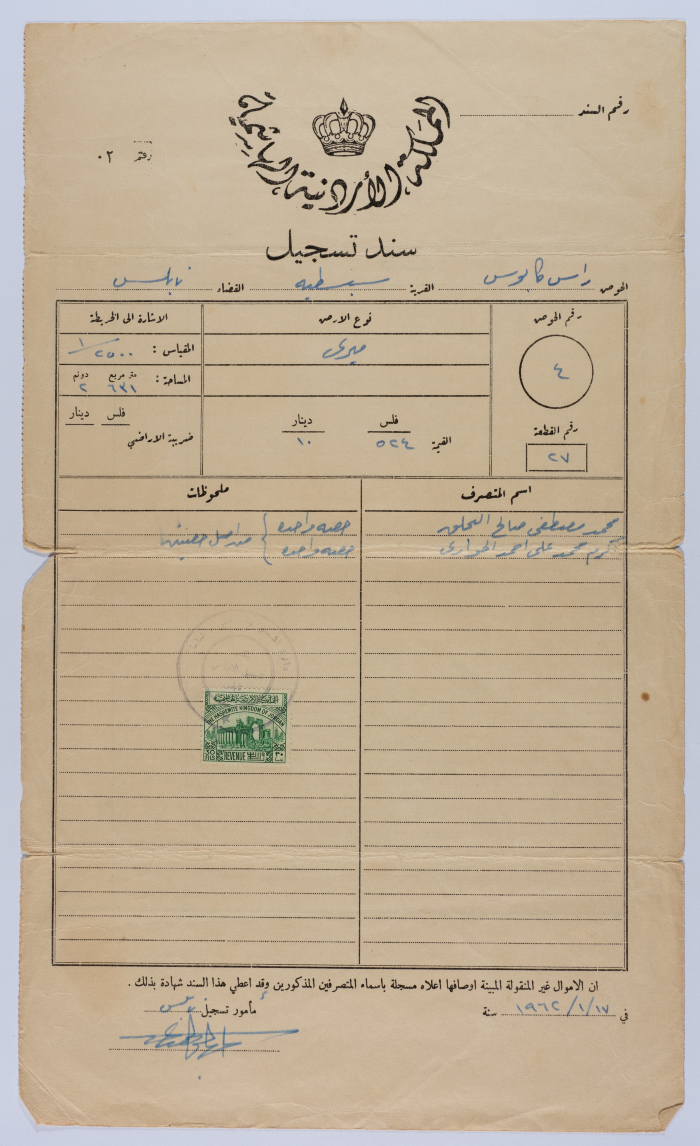 رقم السند
المملكة الأردنية الهاشمية
رقم ٠٢
سند تسجيل
الحوض راس كابوس القرية سبسطيه القضاء نابلس
رقم الحوض
٤
رقم القطعة
٢٧
نوع الارض
ميري
القيمة
فلس دينار
٥٢٤ ١٠
الاشارة الى الخريطة
المقياس : ١/٢٥٠٠
المساحة : متر مربع دونم
٦٣١ ٢
فلس دينار
ضريبة الاراضي
اسم المتصرف ملحوظات
محمد مصطفى صالح حصه واحده
كرم محمد علي احمد الحواري حصه واحده
من اصل حصتين
THE HASHEMITE KINGDOM OF JORDAN
REVENUE
ان الاموال غير المنقولة المبينة اوصافها اعلاه مسجلة باسماء المتصرفين المذكورين وقد اعطي هذا السند شهادة بذلك .
في ١٩٦٢/١/١٧ سنة مأمور تسجيل نابلس